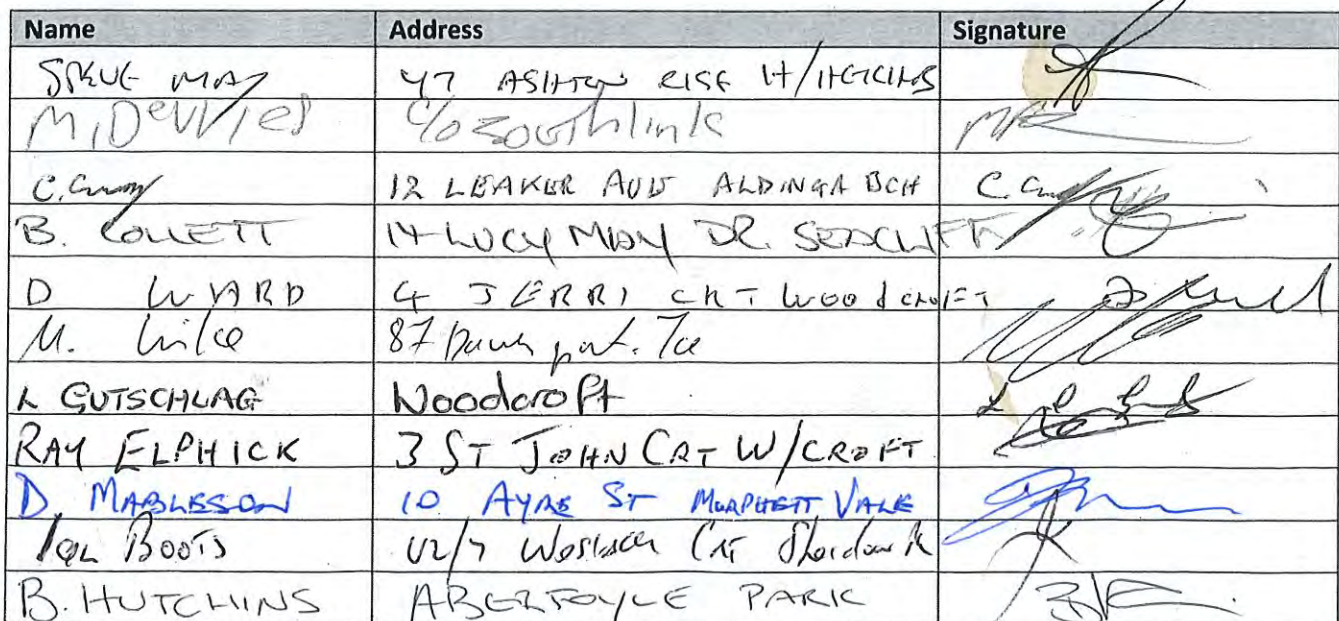 Name Address Signature
STEVE MAY 47 ASHTON RISE H/HEIGHTS
M. DeVries C/o Southlink
C. 12 LEAKER AVE ALDINGA BCH C.
B. COLLETT 14 LUCY MAY DR. SEACLIFF
D WARD 4 JERRI CRT WOODCROFT
M. 87 Davenport. Tce
L GUTSCHLAG Woodcroft
RAY ELPHICK 3 ST JOHN CRT W/CROFT
D. 10 AYRE ST MORPHETT VALE
BOOTS U2/7 CRT Sheidow Pk
B. HUTCHINS ABERFOYLE PARK